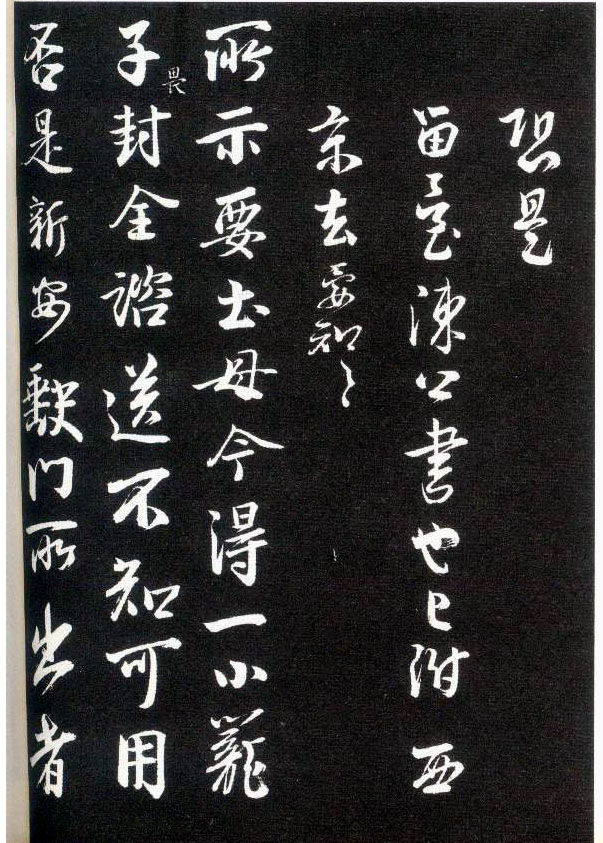 恐是
留臺陳公書也已附西
京去要知〻
所示要土母今得一小籠
子封全諮送不知可用
畏
否是新安缺門所出者